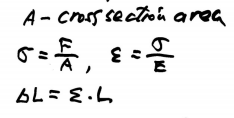 A - cross section area
σ = F/A, ε = σ/E
ΔL = ε · L